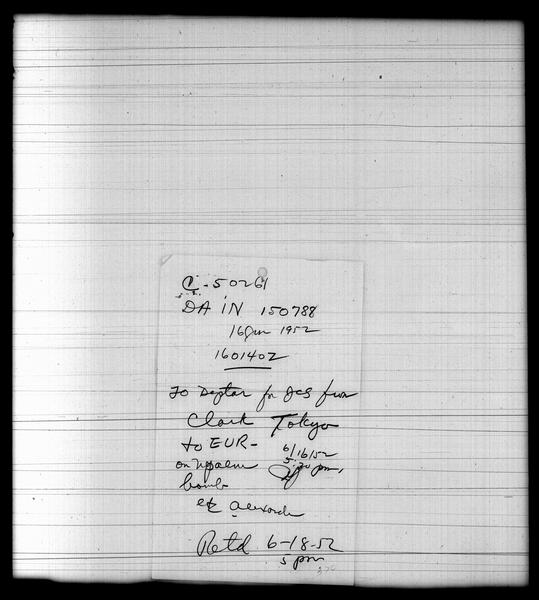 C-50261
DA IN 150788
16 Jun 1952
160140Z
To Deptar for JCS from
Clark Tokyo
to EUR-
6/16/52
on Npalm
5: pm,
bomb
Retd 6-18-52
5 pm